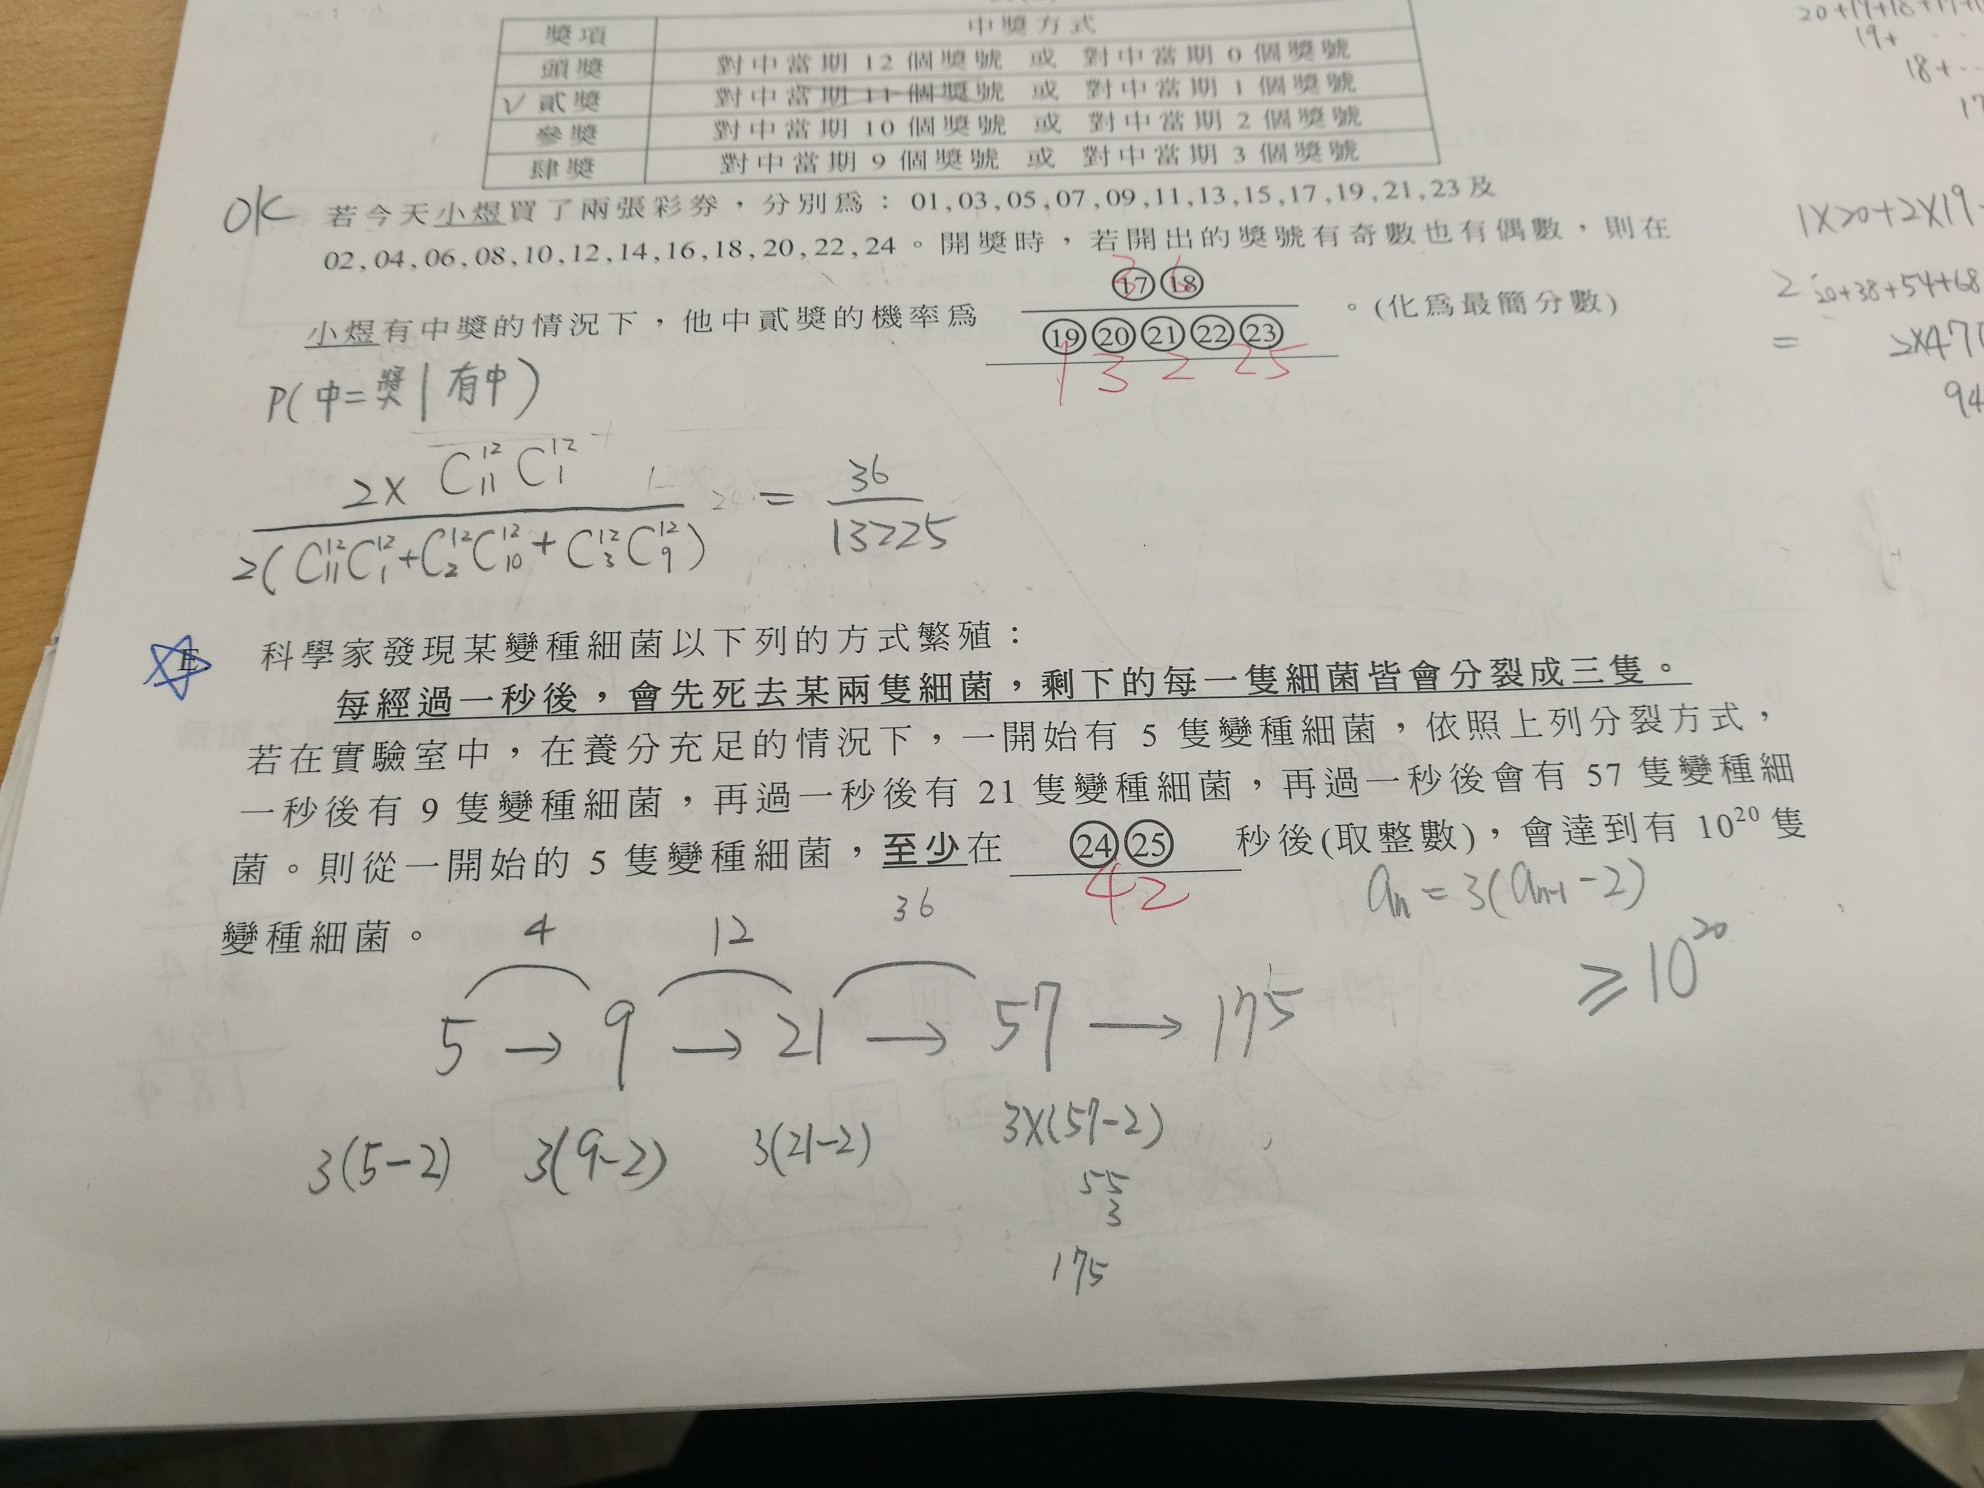 獎項 中獎方式
頭獎 對中當期 12 個獎號 或 對中當期 0 個獎號
✓ 貳獎 對中當期 11 個獎號 或 對中當期 1 個獎號
參獎 對中當期 10 個獎號 或 對中當期 2 個獎號
肆獎 對中當期 9 個獎號 或 對中當期 3 個獎號
OK 若今天小煜買了兩張彩券，分別為：01,03,05,07,09,11,13,15,17,19,21,23及
02,04,06,08,10,12,14,16,18,20,22,24。開獎時，若開出的獎號有奇數也有偶數，則在
⑰⑱
3 6
小煜有中獎的情況下，他中貳獎的機率為 。(化為最簡分數)
⑲⑳㉑㉒㉓
1 3 2 25
P(中=獎|有中)
2× C¹²₁₁ C¹²₁
= 36
2(C¹²₁₁C¹²₁+C¹²₂C¹²₁₀+C¹²₃C¹²₉) 13225
E. 科學家發現某變種細菌以下列的方式繁殖：
每經過一秒後，會先死去某兩隻細菌，剩下的每一隻細菌皆會分裂成三隻。
若在實驗室中，在養分充足的情況下，一開始有 5 隻變種細菌，依照上列分裂方式，
一秒後有 9 隻變種細菌，再過一秒後有 21 隻變種細菌，再過一秒後會有 57 隻變種細
菌。則從一開始的 5 隻變種細菌，至少在 ㉔㉕ 秒後(取整數)，會達到有 10²⁰ 隻
42
變種細菌。
aₙ = 3(aₙ₋₁-2)
≥10²⁰
4 12 36
5 → 9 → 21 → 57 → 175
3(5-2) 3(9-2) 3(21-2) 3×(57-2)
55
3
175
20+19+18+17+
19+ ··
18+··
17
1×20+2×19
20+38+54+68
=
94